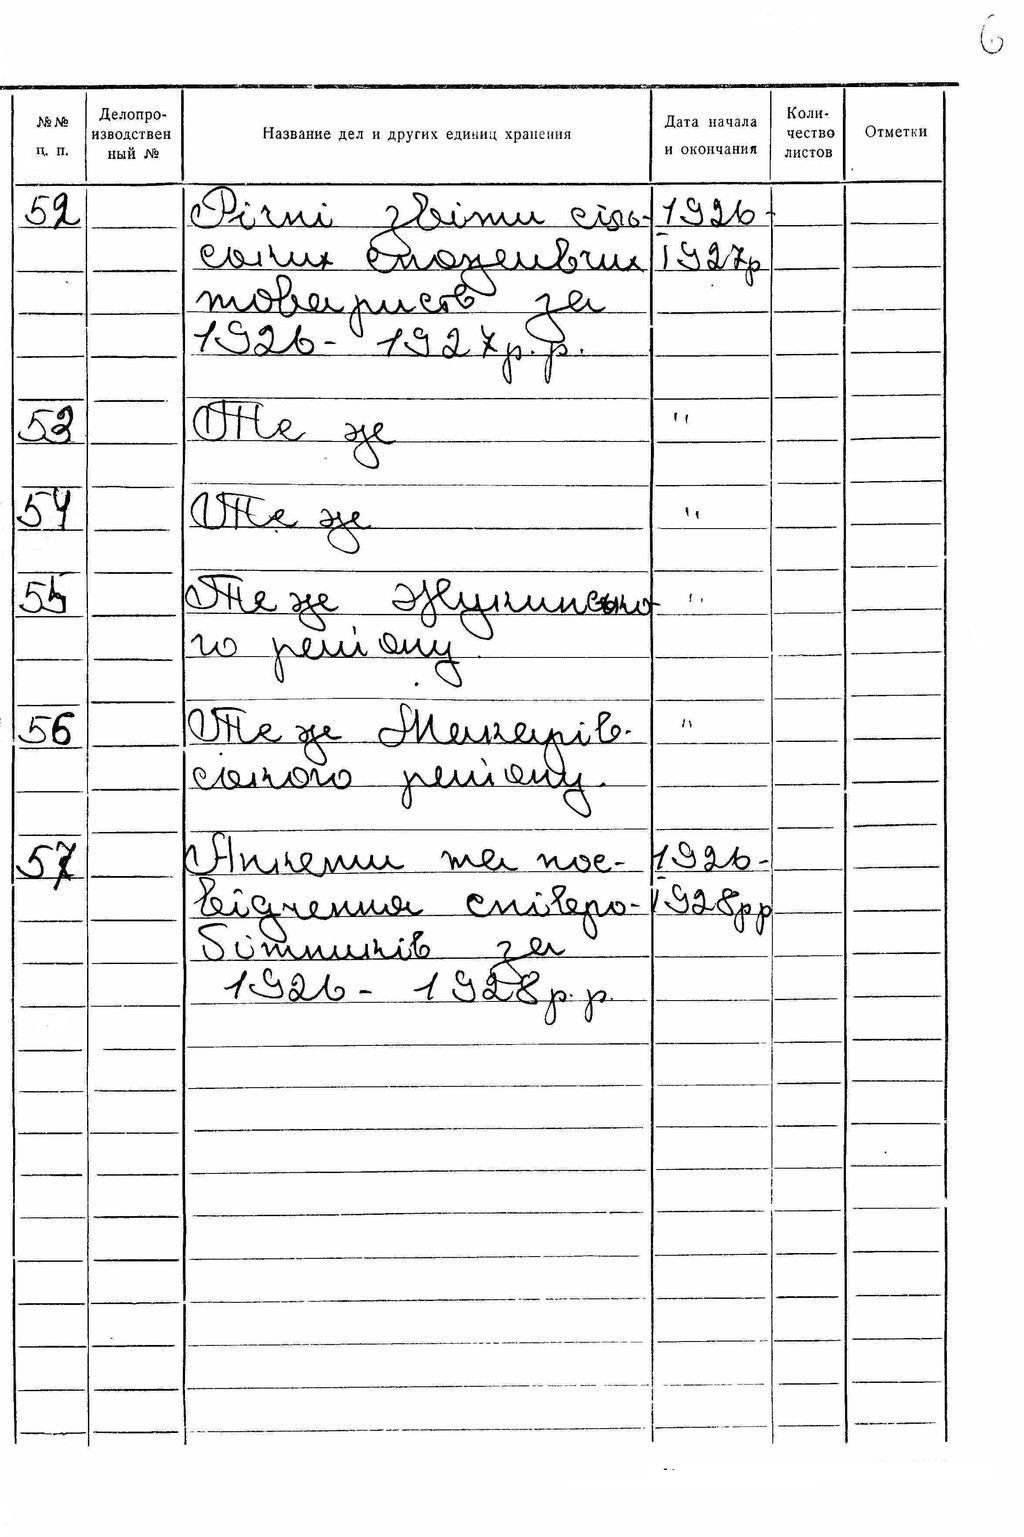 6
№№ ц. п. Делопро-изводствен ный № Название дел и других единиц хранения Дата начала и окончания Коли-чество листов Отметки
52 Річні звіти сіль- 1926-
ських споживчих 1927р
товариств за
1926- 1927р.р.
53 Те же "
54 Те же "
55 Те же "
го регіону
56 Те же Макарів- "
ського регіону.
57 Анкети та пос- 1926-
відчення співро- 1928рр
бітників за
1926- 1928р.р.